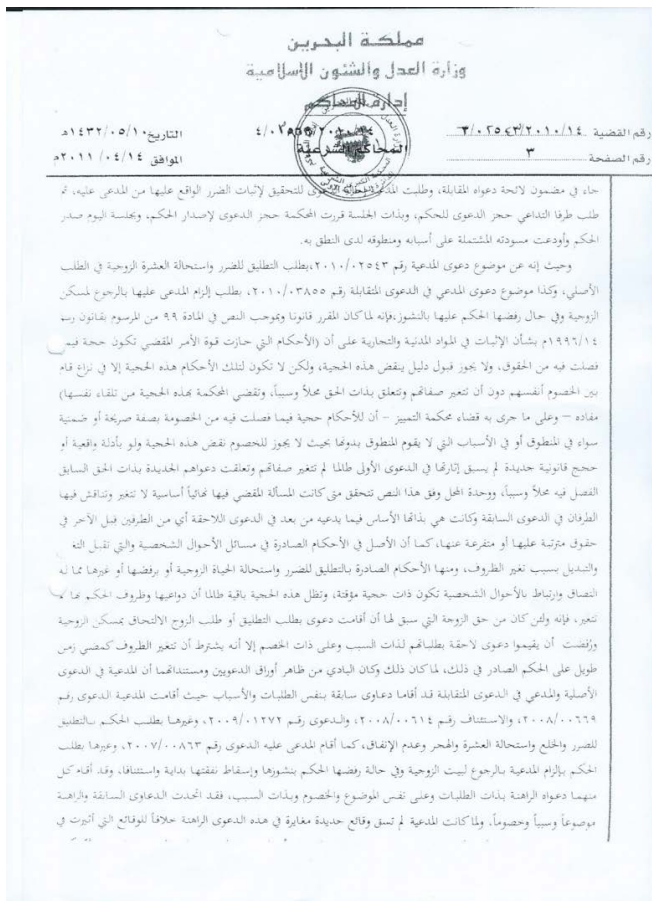 مملكة البحرين
وزارة العدل والشئون الإسلامية
إدارة المحاكم
رقم القضية ٣/٠٢٥٤٣/٢٠١٠/١٤
التاريخ ١٤٣٢/٠٥/١٠هـ
المحاكم الشرعية
رقم الصفحة ٣
الموافق ٢٠١١/٠٤/١٤م
جاء في مضمون لائحة دعواه المقابلة، وطلبت المدعية إحالة الدعوى للتحقيق لإثبات الضرر الواقع عليها من المدعى عليه، ثم
طلب طرفا التداعي حجز الدعوى للحكم، وبذات الجلسة قررت المحكمة حجز الدعوى لإصدار الحكم، وبجلسة اليوم صدر
الحكم وأودعت مسودته المشتملة على أسبابه ومنطوقه لدى النطق به.
وحيث إنه عن موضوع دعوى المدعية رقم ٢٠١٠/٠٢٥٤٣، بطلب التطليق للضرر واستحالة العشرة الزوجية في الطلب
الأصلي، وكذا موضوع دعوى المدعي في الدعوى المتقابلة رقم ٢٠١٠/٠٣٨٥٥، بطلب إلزام المدعى عليها بالرجوع لمسكن
الزوجية وفي حال رفضها الحكم عليها بالنشوز، فإنه لما كان المقرر قانونا وبموجب النص في المادة ٩٩ من المرسوم بقانون رسم
١٩٩٦/١٤م بشأن الإثبات في المواد المدنية والتجارية على أن (الأحكام التي حازت قوة الأمر المقضي تكون حجة فيما
فصلت فيه من الحقوق، ولا يجوز قبول دليل ينقض هذه الحجية، ولكن لا تكون لتلك الأحكام هذه الحجية إلا في نزاع قام
بين الخصوم أنفسهم دون أن تتغير صفاتهم وتتعلق بذات الحق محلاً وسبباً، وتقضي المحكمة بهذه الحجية من تلقاء نفسها)
مفاده – وعلى ما جرى به قضاء محكمة التمييز – أن للأحكام حجية فيما فصلت فيه من الخصومة بصفة صريحة أو ضمنية
سواء في المنطوق أو في الأسباب التي لا يقوم المنطوق بدونها بحيث لا يجوز للخصوم نقض هذه الحجية ولو بأدلة واقعية أو
حجج قانونية جديدة لم يسبق إثارتها في الدعوى الأولى طالما لم تتغير صفاتهم وتعلقت دعواهم الجديدة بذات الحق السابق
الفصل فيه محلاً وسبباً، ووحدة المحل وفق هذا النص تتحقق متى كانت المسألة المقضي فيها نهائياً أساسية لا تتغير وتناقش فيها
الطرفان في الدعوى السابقة وكانت هي بذاتها الأساس فيما يدعيه من بعد في الدعوى اللاحقة أي من الطرفين قبل الآخر في
حقوق مترتبة عليها أو متفرعة عنها، كما أن الأصل في الأحكام الصادرة في مسائل الأحوال الشخصية والتي تقبل التغ
والتبديل بسبب تغير الظروف، ومنها الأحكام الصادرة بالتطليق للضرر واستحالة الحياة الزوجية أو برفضها أو غيرها مما له
التصاق وارتباط بالأحوال الشخصية تكون ذات حجية مؤقتة، وتظل هذه الحجية باقية طالما أن دواعيها وظروف الحكم بها لم
تتغير، فإنه ولئن كان من حق الزوجة التي سبق لها أن أقامت دعوى بطلب التطليق أو طلب الزوج الالتحاق بمسكن الزوجية
ورُفضت أن يقيموا دعوى لاحقة بطلباتهم لذات السبب وعلى ذات الخصم إلا أنه يشترط أن تتغير الظروف كمضي زمن
طويل على الحكم الصادر في ذلك، لما كان ذلك وكان البادي من ظاهر أوراق الدعويين ومستنداتهما أن المدعية في الدعوى
الأصلية والمدعي في الدعوى المتقابلة قد أقاما دعاوى سابقة بنفس الطلبات والأسباب حيث أقامت المدعية الدعوى رقم
٢٠٠٨/٠٠٦٦٩، والاستئناف رقم ٢٠٠٨/٠٠٦١٤، والدعوى رقم ٢٠٠٩/٠١٢٧٢، وغيرها بطلب الحكم بالتطليق
للضرر والخلع واستحالة العشرة والهجر وعدم الإنفاق، كما أقام المدعى عليه الدعوى رقم ٢٠٠٧/٠٠٨٦٣، وغيرها بطلب
الحكم بإلزام المدعية بالرجوع لبيت الزوجية وفي حالة رفضها الحكم بنشوزها وإسقاط نفقتها بداية واستئنافا، وقد أقام كل
منهما دعواه الراهنة بذات الطلبات وعلى نفس الموضوع والخصوم وبذات السبب، فقد اتحدت الدعاوى السابقة والراهنة
موضوعاً وسبباً وخصوماً، ولما كانت المدعية لم تسق وقائع جديدة مغايرة في هذه الدعوى الراهنة خلافاً للوقائع التي أثيرت في